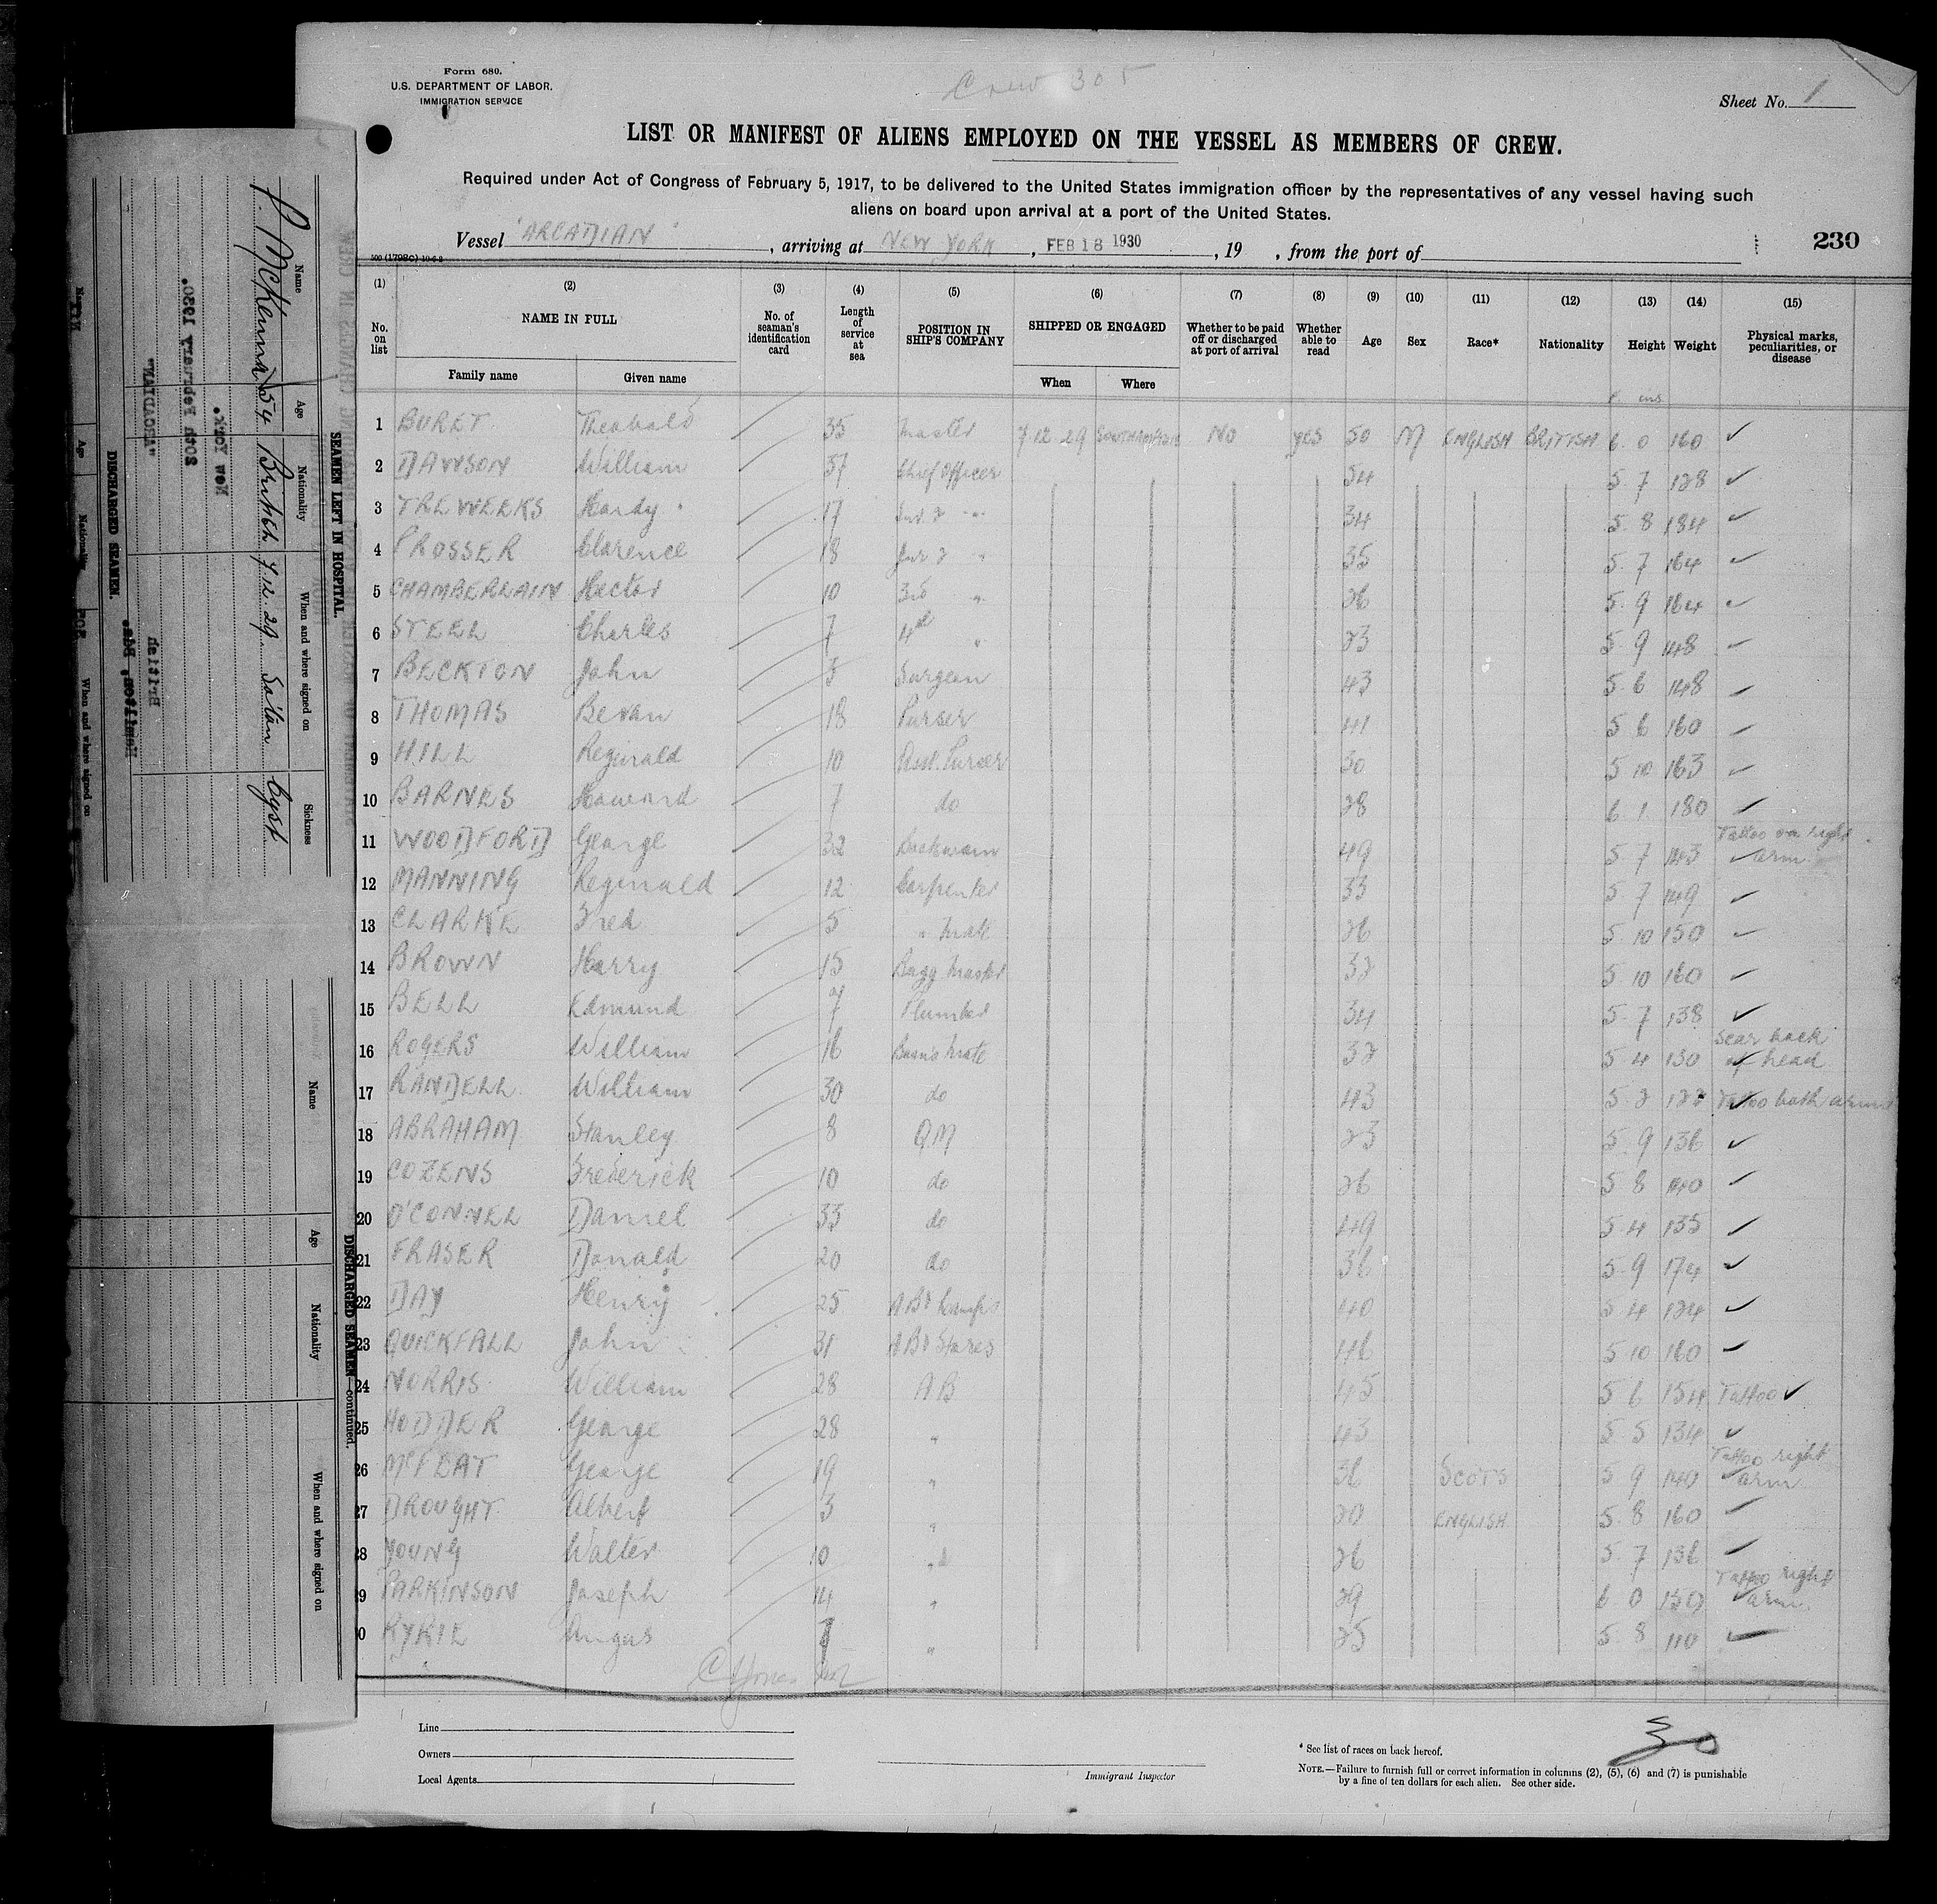 Form 680.
U.S. DEPARTMENT OF LABOR.
IMMIGRATION SERVICE
Crew 305
Sheet No. 1
LIST OR MANIFEST OF ALIENS EMPLOYED ON THE VESSEL AS MEMBERS OF CREW.
Required under Act of Congress of February 5, 1917, to be delivered to the United States immigration officer by the representatives of any vessel having such
aliens on board upon arrival at a port of the United States.
Vessel "ARCADIAN", arriving at NEW YORK, FEB 18 1930, 19 , from the port of
230
(1) (2) (3) (4) (5) (6) (7) (8) (9) (10) (11) (12) (13) (14) (15)
No. on list NAME IN FULL No. of seaman's identification card Length of service at sea POSITION IN SHIP'S COMPANY SHIPPED OR ENGAGED Whether to be paid off or discharged at port of arrival Whether able to read Age Sex Race* Nationality Height Weight Physical marks, peculiarities, or disease
Family name Given name When Where
F ins
1 BURET Theobald 35 Master 7 12 29 SOUTHAMPTON NO YES 50 M ENGLISH BRITISH 6 0 160 ✓
2 DAWSON William 37 Chief Officer 54 5 7 128 ✓
3 TREWEEKS Hardy 17 Snr 2 " 34 5 8 184 ✓
4 PROSSER Clarence 18 Jnr 2 " 35 5 7 164 ✓
5 CHAMBERLAIN Hector 10 3rd " 26 5 9 164 ✓
6 STEEL Charles 7 4th " 23 5 9 148 ✓
7 BECKTON John 3 Surgeon 43 5 6 148 ✓
8 THOMAS Bevan 18 Purser 41 5 6 160 ✓
9 HILL Reginald 10 Asst. Purser 30 5 10 163 ✓
10 BARNES Howard 7 do 28 6 1 180 ✓
11 WOODFORD George 32 49 5 7 143 Tattoo on right ✓ arm
12 MANNING Reginald 12 Carpenter 33 5 7 149 ✓
13 CLARKE Fred 5 " Mate 26 5 10 150 ✓
14 BROWN Harry 15 Bagg Master 32 5 10 160 ✓
15 BELL Edmund 7 Plumber 34 5 7 138 ✓
16 ROGERS William 16 Bosn's Mate 32 5 4 130 Scar back of ✓ head
17 RANDELL William 30 do 43 5 2 122 ✓ Tattoo both arms
18 ABRAHAM Stanley 8 QM 23 5 9 136 ✓
19 COZENS Frederick 10 do 26 5 8 140 ✓
20 O'CONNEL Daniel 33 do 49 5 4 135 ✓
21 FRASER Donald 20 do 36 5 9 174 ✓
22 DAY Henry 25 AB Lamps 40 5 4 124 ✓
23 QUICKFALL John 31 AB Stores 46 5 10 160 ✓
24 NORRIS William 28 AB 45 5 6 154 Tattoo ✓
25 HODDER George 28 " 43 5 5 134 ✓
26 McFEAT George 19 " 36 SCOTS 5 9 140 Tattoo right ✓ arm
27 DROUGHT Albert 3 " 20 ENGLISH 5 8 160 ✓
28 YOUNG Walter 10 " 26 5 7 136 ✓
29 PARKINSON Joseph 14 " 29 6 0 150 Tattoo right ✓ arm
0 RYRIE Angus 7 " 25 5 8 110 ✓
Line
Owners
Local Agents
Immigrant Inspector
30
* See list of races on back hereof.
NOTE.—Failure to furnish full or correct information in columns (2), (5), (6) and (7) is punishable
by a fine of ten dollars for each alien. See other side.
SEAMEN LEFT IN HOSPITAL.
Name Age Nationality When and where signed on Sickness
P. McKenna 54 British 7.12.29. So'ton Cyst
New York.
"ARCADIAN"
British
Hamilton, Bda.
DISCHARGED SEAMEN.
Name Age Nationality When and where signed on
DISCHARGED SEAMEN—continued.
Name Age Nationality When and where signed on